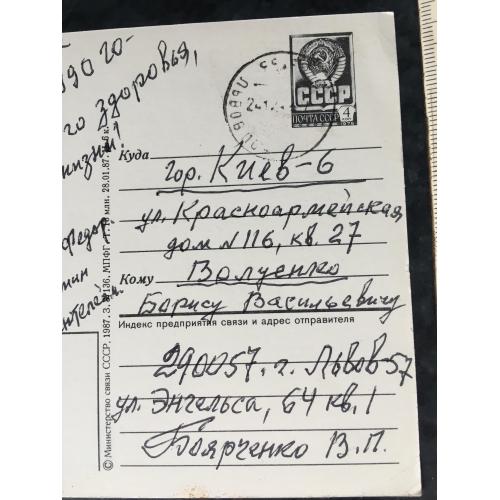 90 го-
го здоровья,
жизни!
Федор
СССР
ПОЧТА СССР 4
Куда
гор. Киев-6
ул. Красноармейская,
дом № 116, кв. 27
Кому
Валуенко
Борису Васильевичу
Индекс предприятия связи и адрес отправителя
290057. г. Львов-57
ул. Энгельса, 64 кв. 1
Боярченко В. П.
© Министерство связи СССР, 1987. З. 87136. МПФГ. Т. 16 млн. 28.01.87.